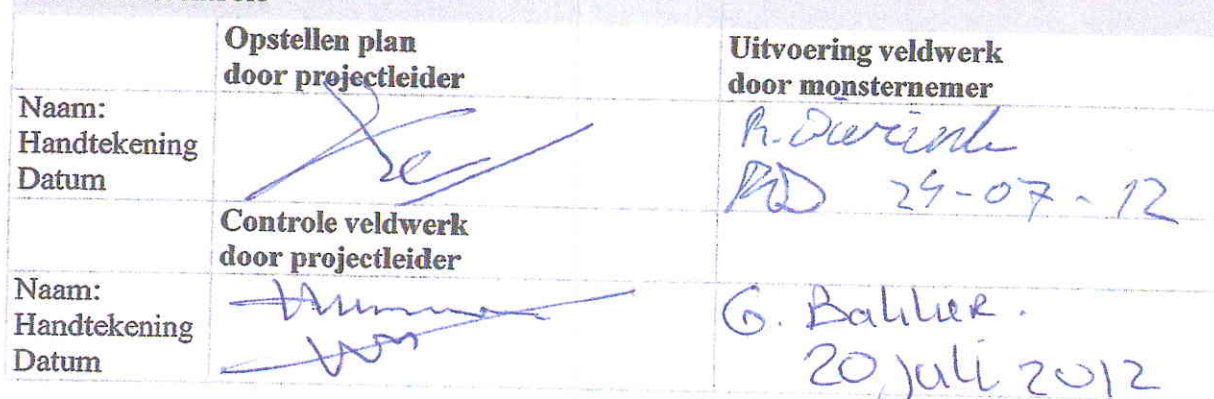 Opstellen plan
door projectleider
Uitvoering veldwerk
door monsternemer
Naam:
Handtekening
Datum
R.
RD 24-07-12
Controle veldwerk
door projectleider
Naam:
Handtekening
Datum
G. Bakker.
20 juli 2012